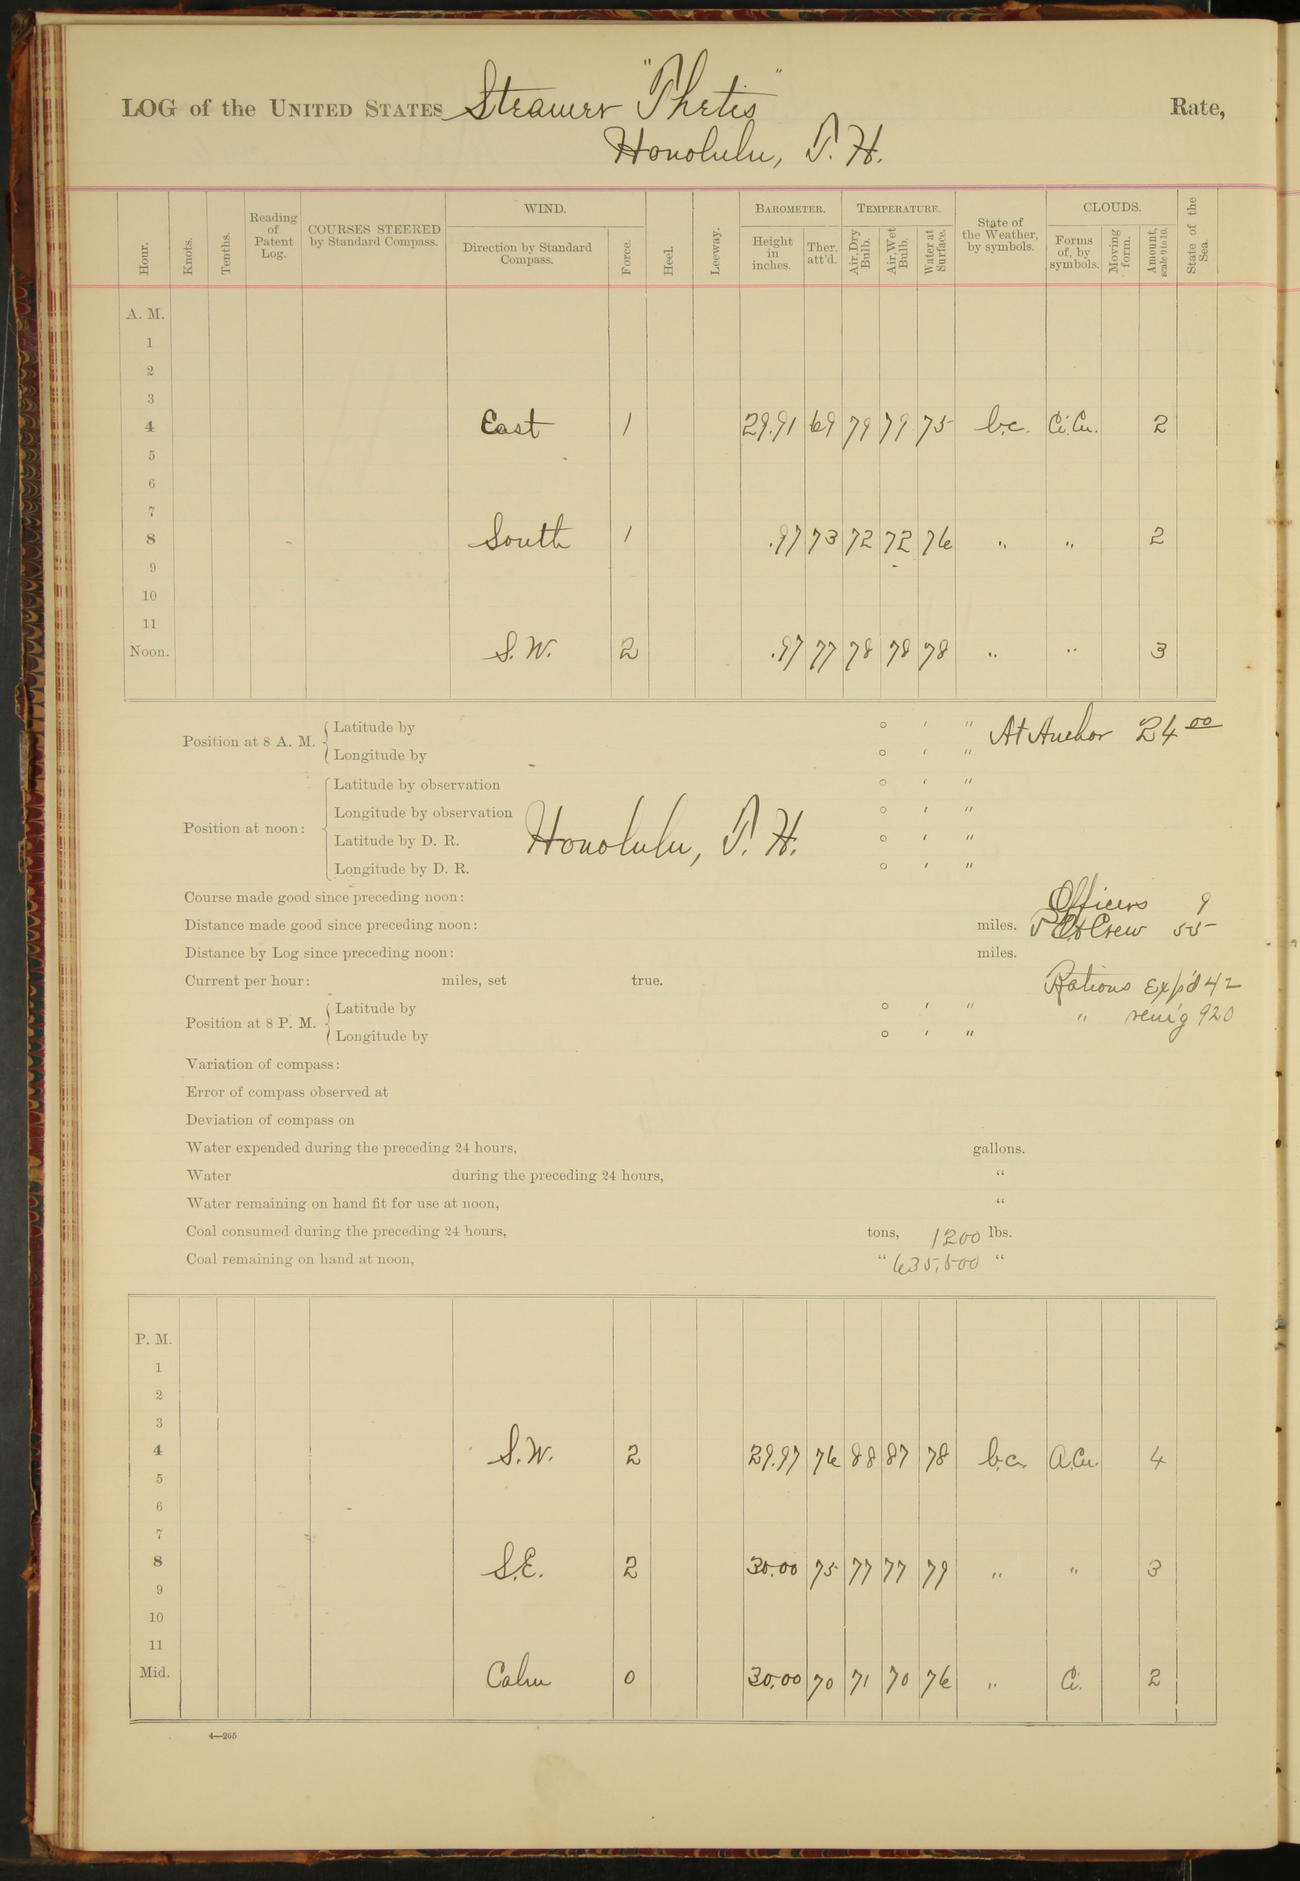 LOG of the UNITED STATES Steamer "Thetis" Rate,
Honolulu, T. H.
Hour. Knots. Tenths. Reading of Patent Log. COURSES STEERED by Standard Compass. WIND. Direction by Standard Compass. Force. Heel. Leeway. BAROMETER. Height in inches. Ther. att'd. TEMPERATURE. Air, Dry Bulb. Air, Wet Bulb. Water at Surface. State of the Weather, by symbols. CLOUDS. Forms of, by symbols. Moving form. Amount, scale 0 to 10. State of the Sea.
A. M.
1
2
3
4 East 1 29.91 69 79 79 75 b.c. Ci.Cu. 2
5
6
7
8 South 1 .97 73 72 72 76 " " 2
9
10
11
Noon. S.W. 2 .97 77 78 78 78 " " 3
Position at 8 A. M. Latitude by ° ' " At Anchor 24 00
Longitude by ° ' "
Position at noon: Latitude by observation ° ' "
Longitude by observation ° ' "
Latitude by D. R. Honolulu, T. H. ° ' "
Longitude by D. R. ° ' "
Course made good since preceding noon: Officers 9
Distance made good since preceding noon: miles. Crew 55
Distance by Log since preceding noon: miles.
Current per hour: miles, set true. Rations Exp'd 42
Position at 8 P. M. Latitude by ° ' " " rem'g 920
Longitude by ° ' "
Variation of compass:
Error of compass observed at
Deviation of compass on
Water expended during the preceding 24 hours, gallons.
Water during the preceding 24 hours, "
Water remaining on hand fit for use at noon, "
Coal consumed during the preceding 24 hours, tons, 1200 lbs.
Coal remaining on hand at noon, " 635,500 "
P. M.
1
2
3
4 S.W. 2 29.97 76 88 87 78 b.c. A.Cu. 4
5
6
7
8 S.E. 2 30.00 75 77 77 79 " " 3
9
10
11
Mid. Calm 0 30.00 70 71 70 76 " Ci. 2
4—265